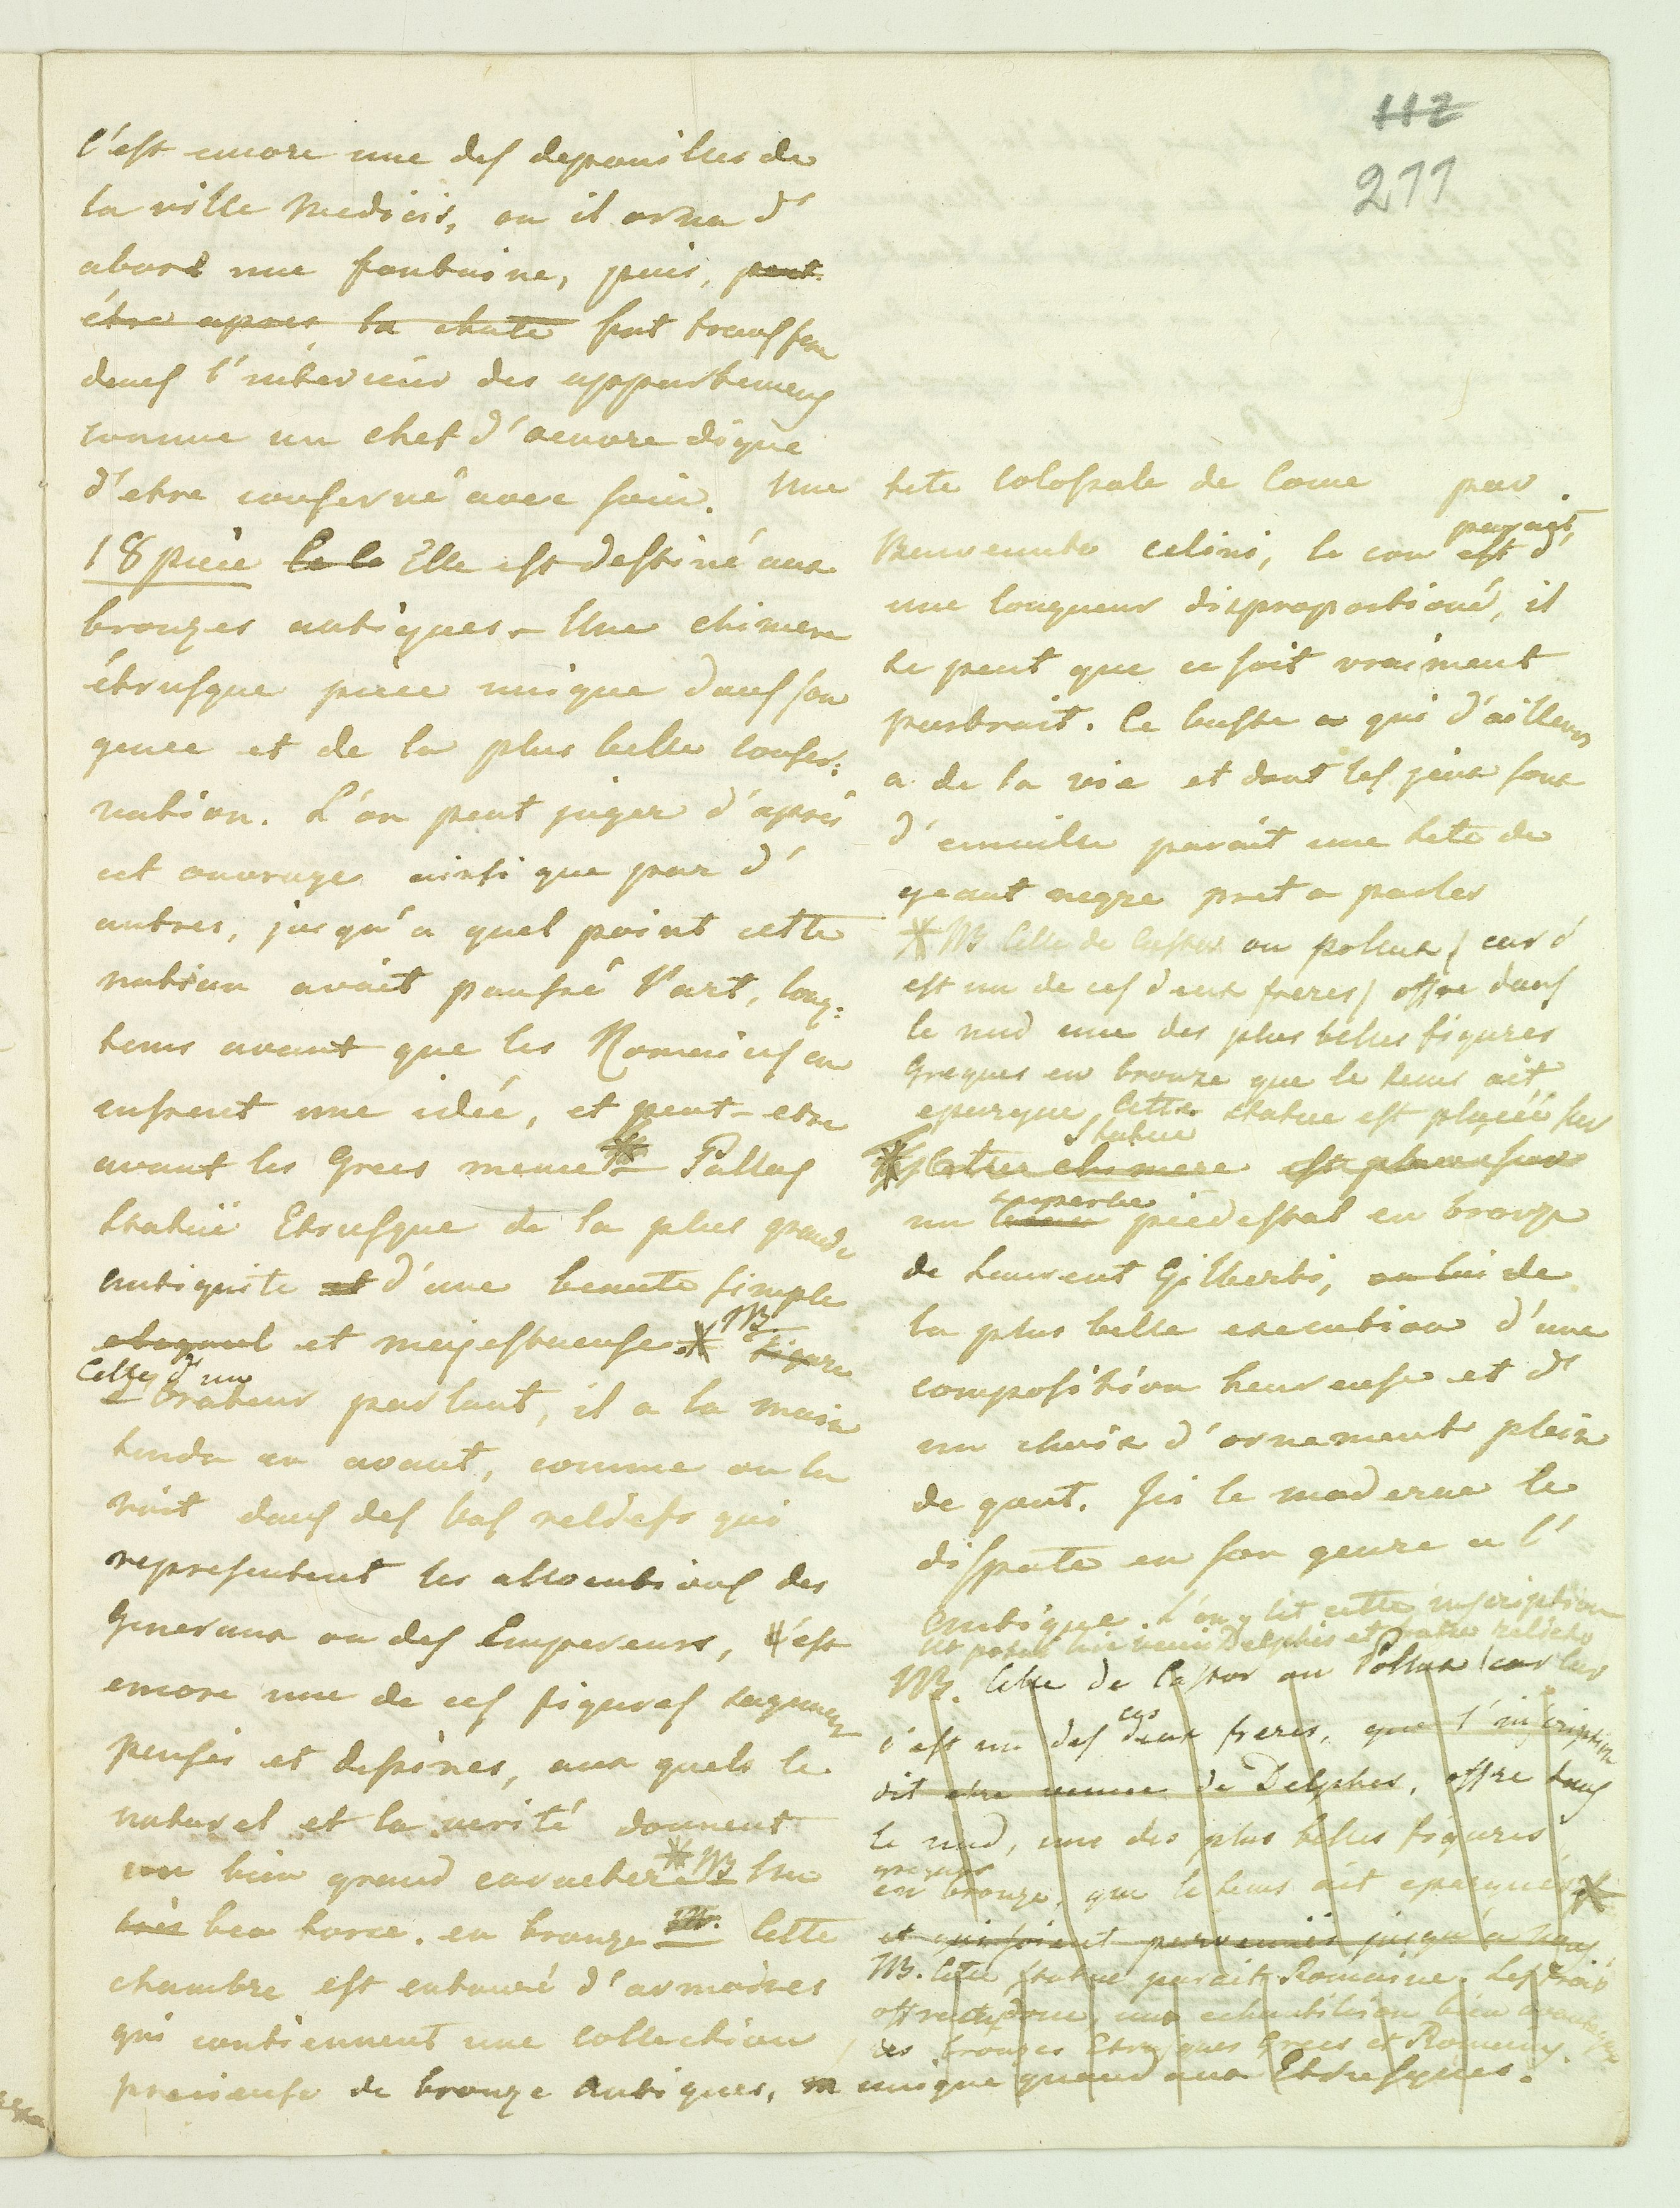 112
211
C'est encore une des depouilles de
la ville Medicis, ou il orna d'
abord une fontaine, puis, peut
être apres la chute fut transpor
dans l'interieur des appartemens
comme un chef d'oeuvre digne
d'etre conservé avec soin. Une
18 piece Ce le Elle est destiné aux
bronzes antiques – Une chimere
étrusque piece unique dans son
genre et de la plus belle conser:
vation. L'on peut juger d'après
cet ouvrage ainsi que par d'
autres, jusqu'a quel point cette
nation avait poussé l'art, long:
tems avant que les Romains en
eussent une idée, et peut-etre
avant les Grecs meme Pallas
Statuë Etrusque de la plus grande
antiquite et d'une beauté simple
et majestueuse * NB. figure
Celle d'un
Orateur parlant, il a la main
tendu en avant, comme on la
voit dans des bas reliefs qui
representent les allocutions des
Generaux ou des Empereurs, c'est
encore une de ces figures sagement
pensés et dessinés, aux quels le
naturel et la verité donnent
un bien grand caractere * NB Un
très beau torse. en bronze Cette
chambre est entouré d'armoires
qui contiennent une collection
precieuse de bronze antiques,
tete colossale de Come par
Benvenuto celini, le cou est d'
une longueur disproportioné, il
se peut que ce soit vraiment
portrait. Ce buste a qui d'ailleurs
a de la vie et dont les yeux sont
d'emaille parait une tete de
geant negre pret a parler
* NB Celle de Castor ou pollux (car c'
est un de ces deux freres) offre dans
le nud une des plus belles figures
Greques en bronze que le tems ait
epargné, Cette statue est placéé sur
statue
Cette chimere est placee sur
superbe
un piedestal en bronze
de Laurent Gilberti, de
la plus belle execution d'une
composition heureuse et d'
un choix d'ornements plein
de gout. Ici le moderne le
dispute en son genre a l'
antique. L'on y lit cette inscription
NB. Celle de Castor ou Pollux (car
ces
c'est un des deux freres, que l'inscription
dit etre venue de Delphes, offre dans
le nud, une des plus belles figures
greques
en bronze, que le tems ait epargné *
et qui soient parvenues jusqu'a nous,
NB. Cette statue parait Romaine. Les trois
offrent donc, une echantillion bien
des bronzes Etrusques Grecs et Romains.
unique quand aux Etrusques.